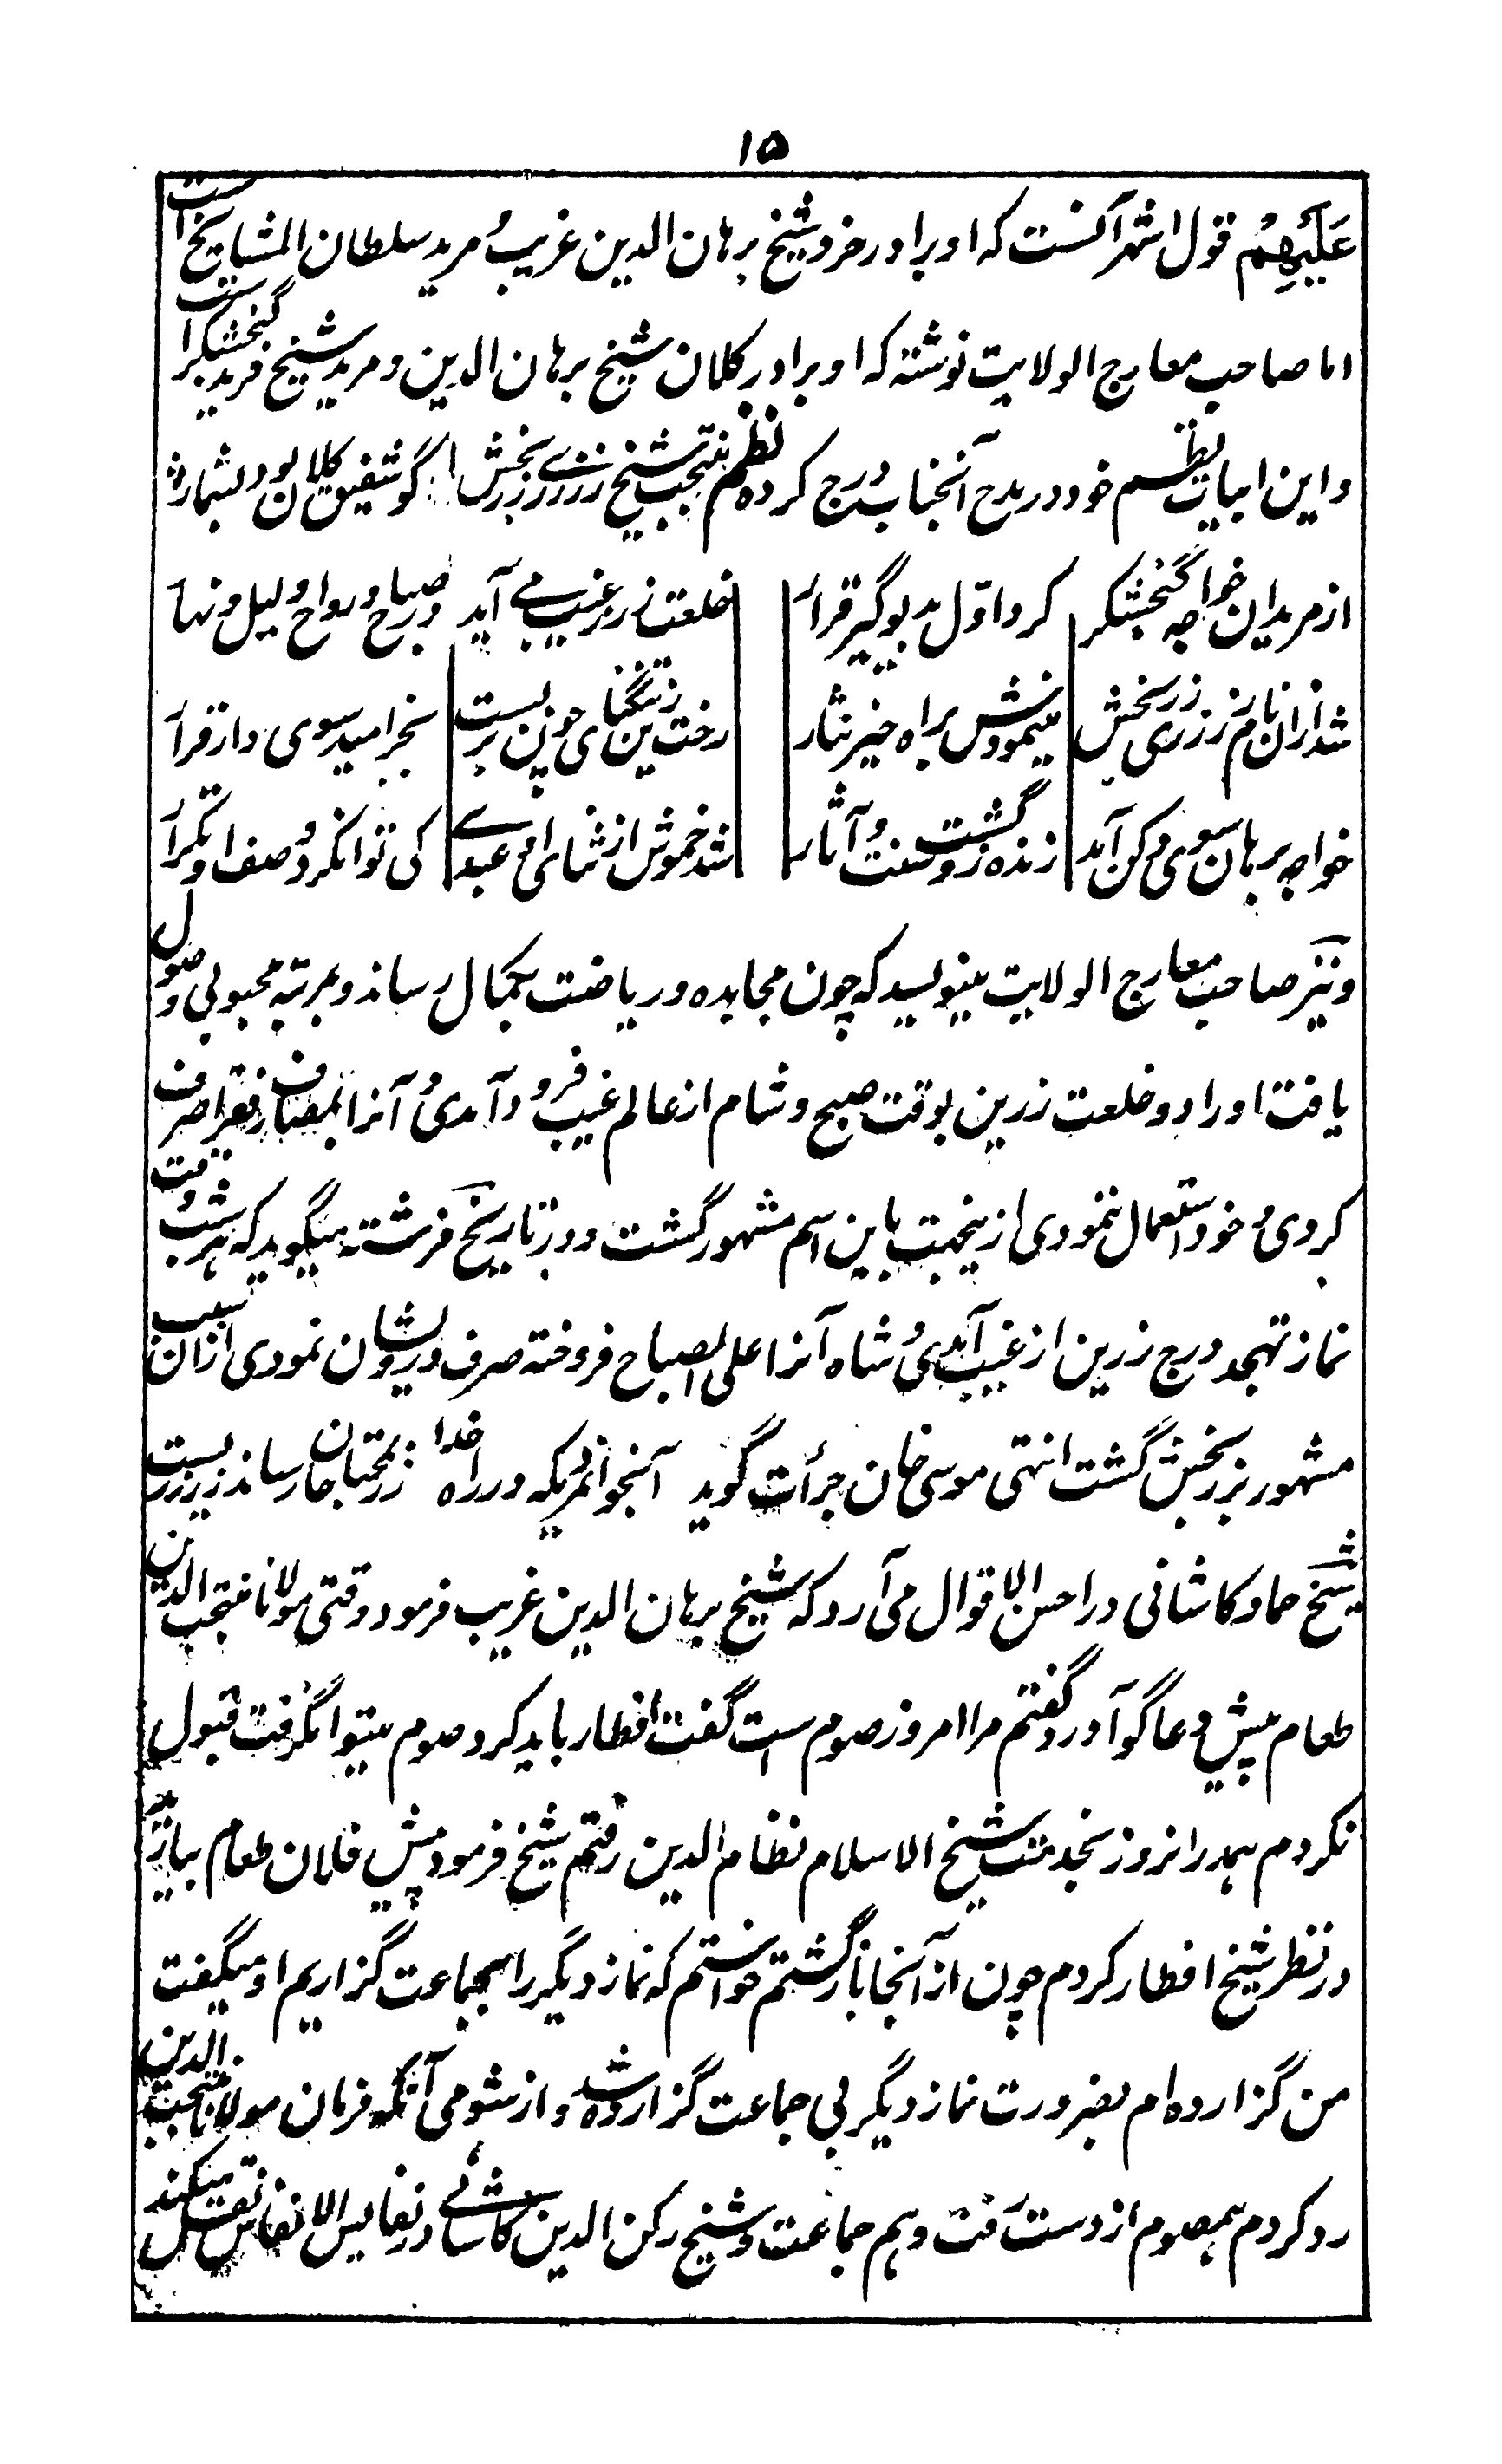 ۱۵
عَلَیْهِمْ قول اشهر آنست که او برادر خرد شیخ برهان الدین غریب و مرید سلطان المشایخ است
اما صاحب معارج الولایت نوشته که او برادر کلان شیخ برهان الدین و مرید شیخ فرید گنجشکر است
و این ابیات بنظم خود در مدح آنجناب درج کرده نظم منتجب شیخ زرزری زربخش گو شفیق کلان بود بشمار
از مریدان خواجه گنجشکر کرد اول بدیوگیر قرار خلعت زر ز غیب می آید در صباح و رواح و لیل و نهار
شد ازان نام زرزری زربخش مینمودش براه خیر نثار رخت زین تنگنای چون بربست بخرامید سوی دار قرار
خواجه برهان سوی دکن آمد زنده زو گشت سنت و آثار شد خموش از ثنای او عبدی کی توانکرد وصف او تکرار
و نیز صاحب معارج الولایت مینویسد که چون مجاهده و ریاضت بکمال رساند و بمرتبه محبوبی وصول
یافت او را دو خلعت زرین بوقت صبح و شام از عالم غیب فرود آمدی و آنرا بمصارف فقرا صرف
کردی و خود استعمال ننمودی ازینجهت باین اسم مشهور گشت و در تاریخ فرشته میگوید که هر شب وقت
نماز تهجد درج زرین از غیب آمدی و شاه آنرا علی الصباح فروخته صرف درویشان نمودی ازان سبب
مشهور بزربخش گشت انتهی موسی خان جرأت گوید آنجوانمردیکه در راه خدا زر بمحتاجان رساند زرزریست
شیخ حماد کاشانی در احسن الاقوال می آرد که شیخ برهان الدین غریب فرمود وقتی مولانا منتجب الدین
طعام پیش دعاگو آورد گفتم مرا امروز صوم است گفت افطار باید کرد صوم میتوانگرفت قبول
نکردم همدرانروز بخدمت شیخ الاسلام نظام الدین رفتم شیخ فرمود پیش فلان طعام بیارید
در نظر شیخ افطار کردم چون از آنجا باز گشتم خواستم که نماز دیگر را بجماعت گزاریم او میگفت
من گزارده ام بضرورت نماز دیگر بی جماعت گزارده شد و از شومی آنکه فرمان مولانا منتجب الدین
رد کردم هم صوم از دست رفت و هم جماعت و شیخ رکن الدین کاشانی در نفایس الانفاس نقل میکند